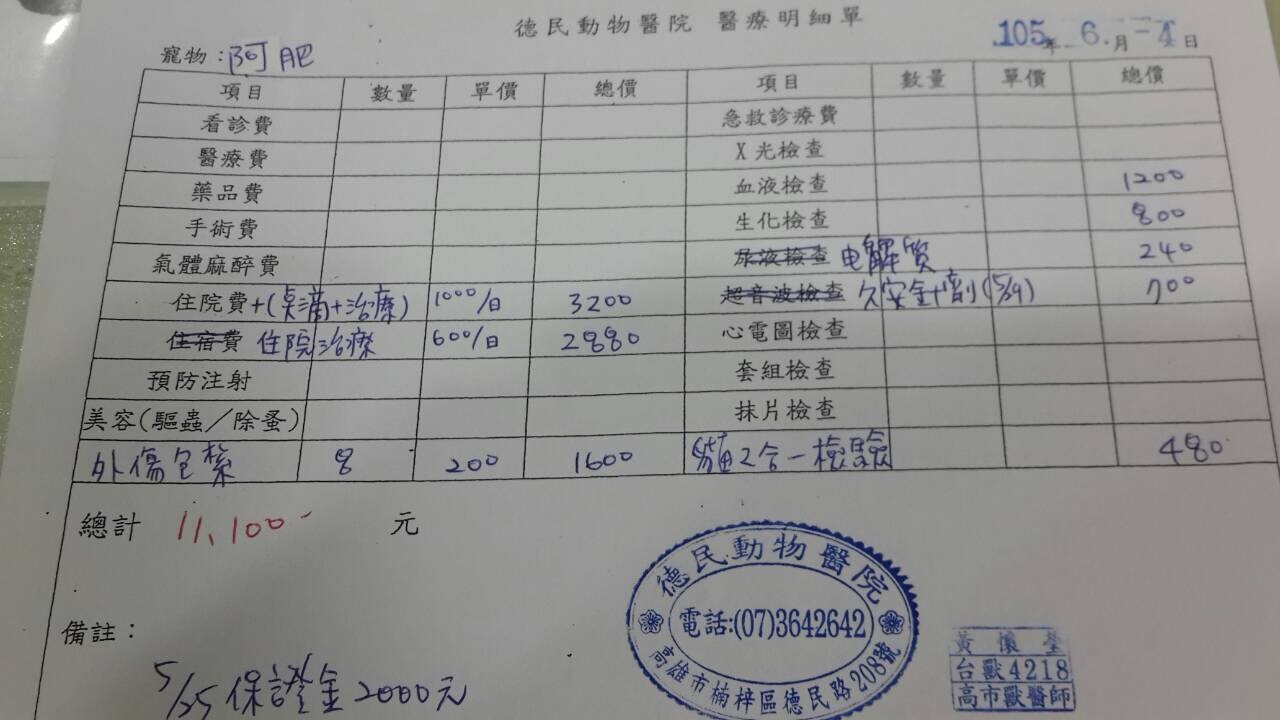 德民動物醫院 醫療明細單
105年 6.月 -4日
寵物:阿肥
項目 數量 單價 總價 項目 數量 單價 總價
看診費 急救診療費
醫療費 X光檢查
藥品費 血液檢查 1200
手術費 生化檢查 800
氣體麻醉費 尿液檢查 电解質 240
住院費+(点滴+治療) 1000/日 3200 超音波檢查 (5/29) 700
住宿費 住院治療 600/日 2880 心電圖檢查
預防注射 套組檢查
美容(驅蟲/除蚤) 抹片檢查
外傷包紮 8 200 1600 貓2合一檢驗 480
總計 11,100 元
備註:
5/25 保證金2000元
德民動物醫院
電話:(07)3642642
高雄市楠梓區德民路208號
黃懷瑩
台獸4218
高市獸醫師